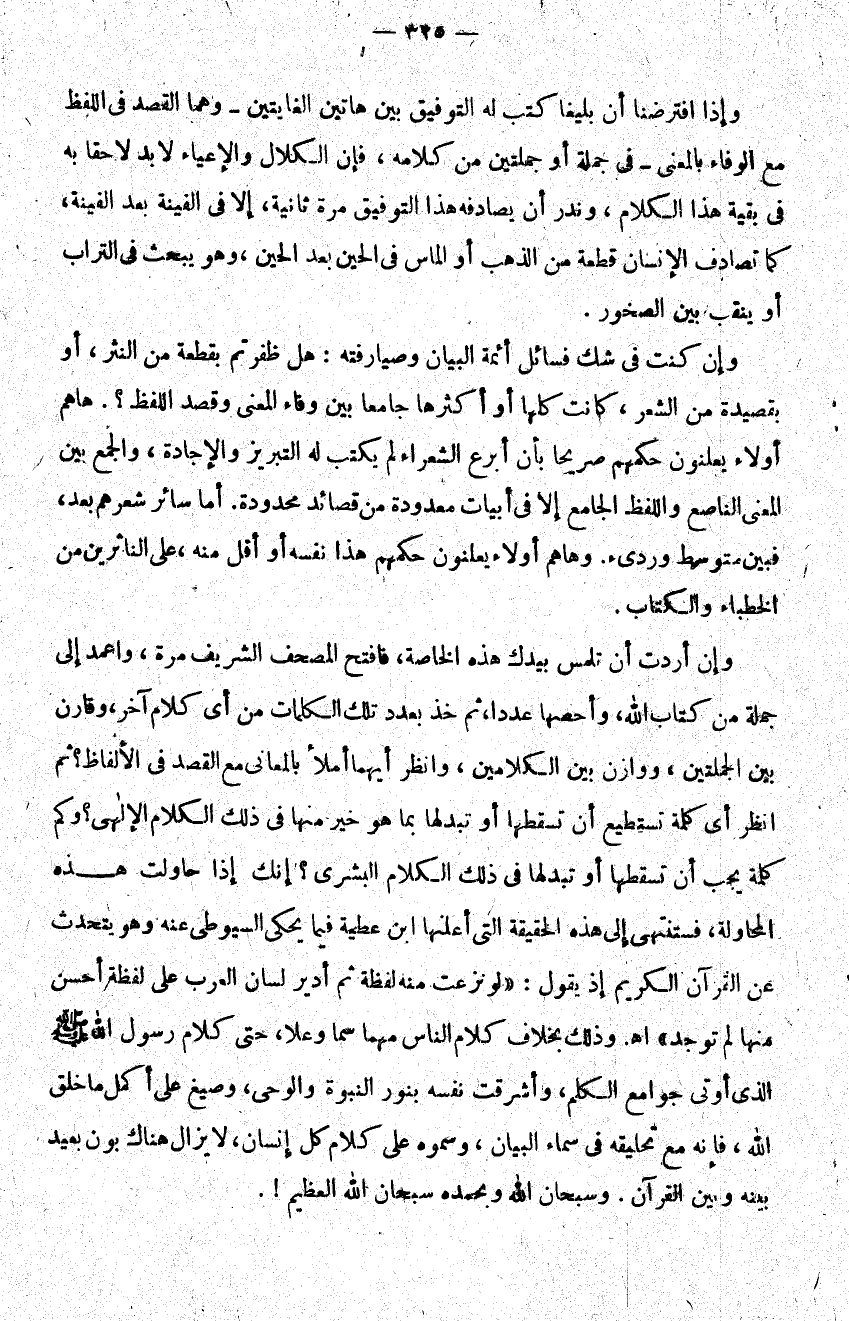 — ٣٢٥ —
وإذا افترضنا أن بليغا كتب له التوفيق بين هاتين الغايتين – وهما القصد فى اللفظ
مع الوفاء بالمعنى – فى جملة أو جملتين من كلامه ، فإن الكلال والإعياء لابد لاحقا به
فى بقية هذا الكلام ، وندر أن يصادفه هذا التوفيق مرة ثانية، إلا فى الفينة بعد الفينة،
كما تصادف الإنسان قطعة من الذهب أو الماس فى الحين بعد الحين ،وهو يبحث فى التراب
أو ينقب بين الصخور .
وإن كنت فى شك فسائل أئمة البيان وصيارفته : هل ظفرتم بقطعة من النثر ، أو
بقصيدة من الشعر ، كانت كلها أو أكثرها جامعا بين وفاء المعنى وقصد اللفظ ؟ . هاهم
أولاء يعلنون حكمهم صريحا بأن أبرع الشعراء لم يكتب له التبريز والإجادة ، والجمع بين
المعنى الناصع واللفظ الجامع إلا فى أبيات معدودة من قصائد محدودة. أما سائر شعرهم بعد،
فبين متوسط وردىء. وهاهم أولاء يعلنون حكمهم هذا نفسه أو أقل منه ،على الناثرين من
الخطباء والكتاب .
وإن أردت أن تلمس بيدك هذه الخاصة، فافتح المصحف الشريف مرة ، واعمد إلى
جملة من كتاب الله، وأحصها عددا،ثم خذ بعدد تلك الكلمات من أى كلام آخر،وقارن
بين الجملتين ، ووازن بين الكلامين ، وانظر أيهما أملأ بالمعانى مع القصد فى الألفاظ؟ ثم
انظر أى كلمة تستطيع أن تسقطها أو تبدلها بما هو خير منها فى ذلك الكلام الإلٰهى؟ وكم
كلمة يجب أن تسقطها أو تبدلها فى ذلك الكلام البشرى ؟ إنك إذا حاولت هـــذه
المحاولة، فستنتهى إلى هذه الحقيقة التى أعلنها ابن عطية فيما يحكى السيوطى عنه وهو يتحدث
عن القرآن الكريم إذ يقول : «لو نزعت منه لفظة ثم أدير لسان العرب على لفظة أحسن
منها لم توجد» اهـ. وذلك بخلاف كلام الناس مهما سما وعلا، حتى كلام رسول الله ﷺ
الذى أوتى جوامع الكلم، وأشرقت نفسه بنور النبوة والوحى، وصيغ على أكمل ما خلق
الله ، فإنه مع تحليقه فى سماء البيان ، وسموه على كلام كل إنسان، لا يزال هناك بون بعيد
بينه وبين القرآن . وسبحان الله وبحمده سبحان الله العظيم ! .